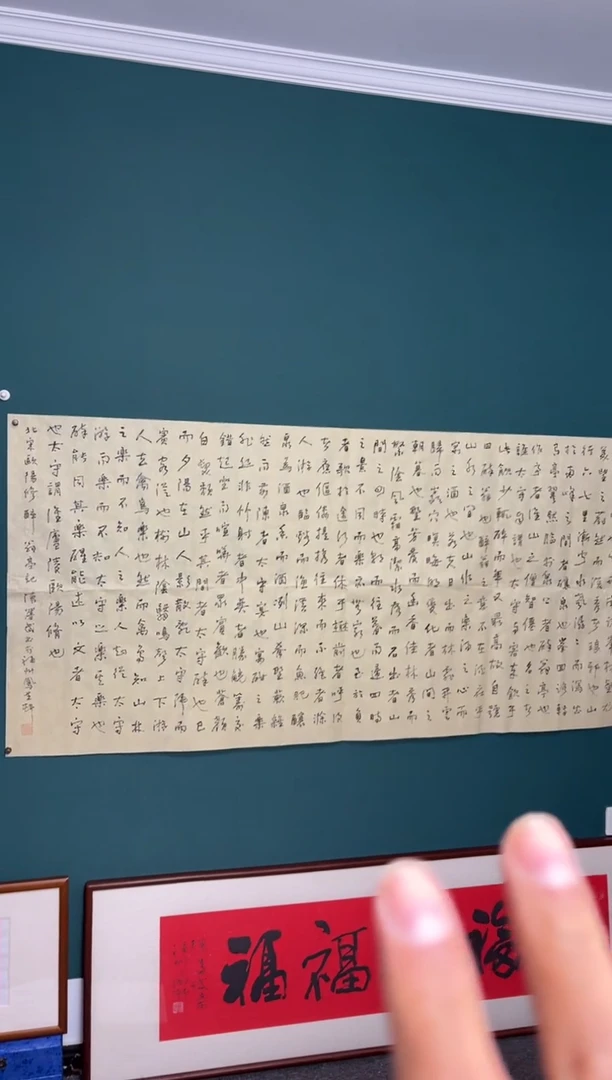 行六七里漸聞水聲潺潺而瀉出
於兩峰之間者釀泉也峰回路轉
有亭翼然臨於泉上者醉翁亭也
作亭者誰山之僧智僊也名之者
誰太守自謂也太守與客來飲于
此飲少輒醉而年又最高故自號
曰醉翁也醉翁之意不在酒在乎
山水之間也山水之樂得之心而
寓之酒也若夫日出而林霏開雲
歸而巖穴暝晦明變化者山間之
朝暮也野芳發而幽香佳木秀而
繁陰風霜高潔水落而石出者山
間之四時也朝而往暮而歸四時
之景不同而樂亦無窮也至於負
者歌於途行者休于樹前者呼後
者應傴僂提攜往來而不絕者滁
人游也臨谿而漁谿深而魚肥釀
泉為酒泉香而酒洌山肴野蔌雜
然而前陳者太守宴也宴酣之樂
非絲非竹射者中弈者勝觥籌交
錯起坐而喧嘩者眾賓歡也蒼顏
白髮頹然乎其間者太守醉也已
而夕陽在山人影散亂太守歸而
賓客從也樹林陰翳鳴聲上下游
人去禽鳥樂也然而禽鳥知山林
之樂而不知人之樂人知從太守
游而樂而不知太守之樂其樂也
醉能同其樂醒能述以文者太守
也太守謂誰廬陵歐陽脩也
北宋歐陽修醉翁亭記
福福